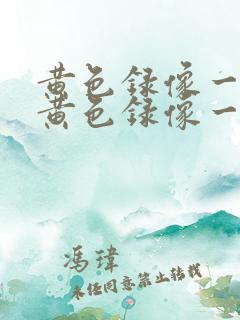 黄色録像一
黄色録像一
馮瑋
未经同意禁止转载